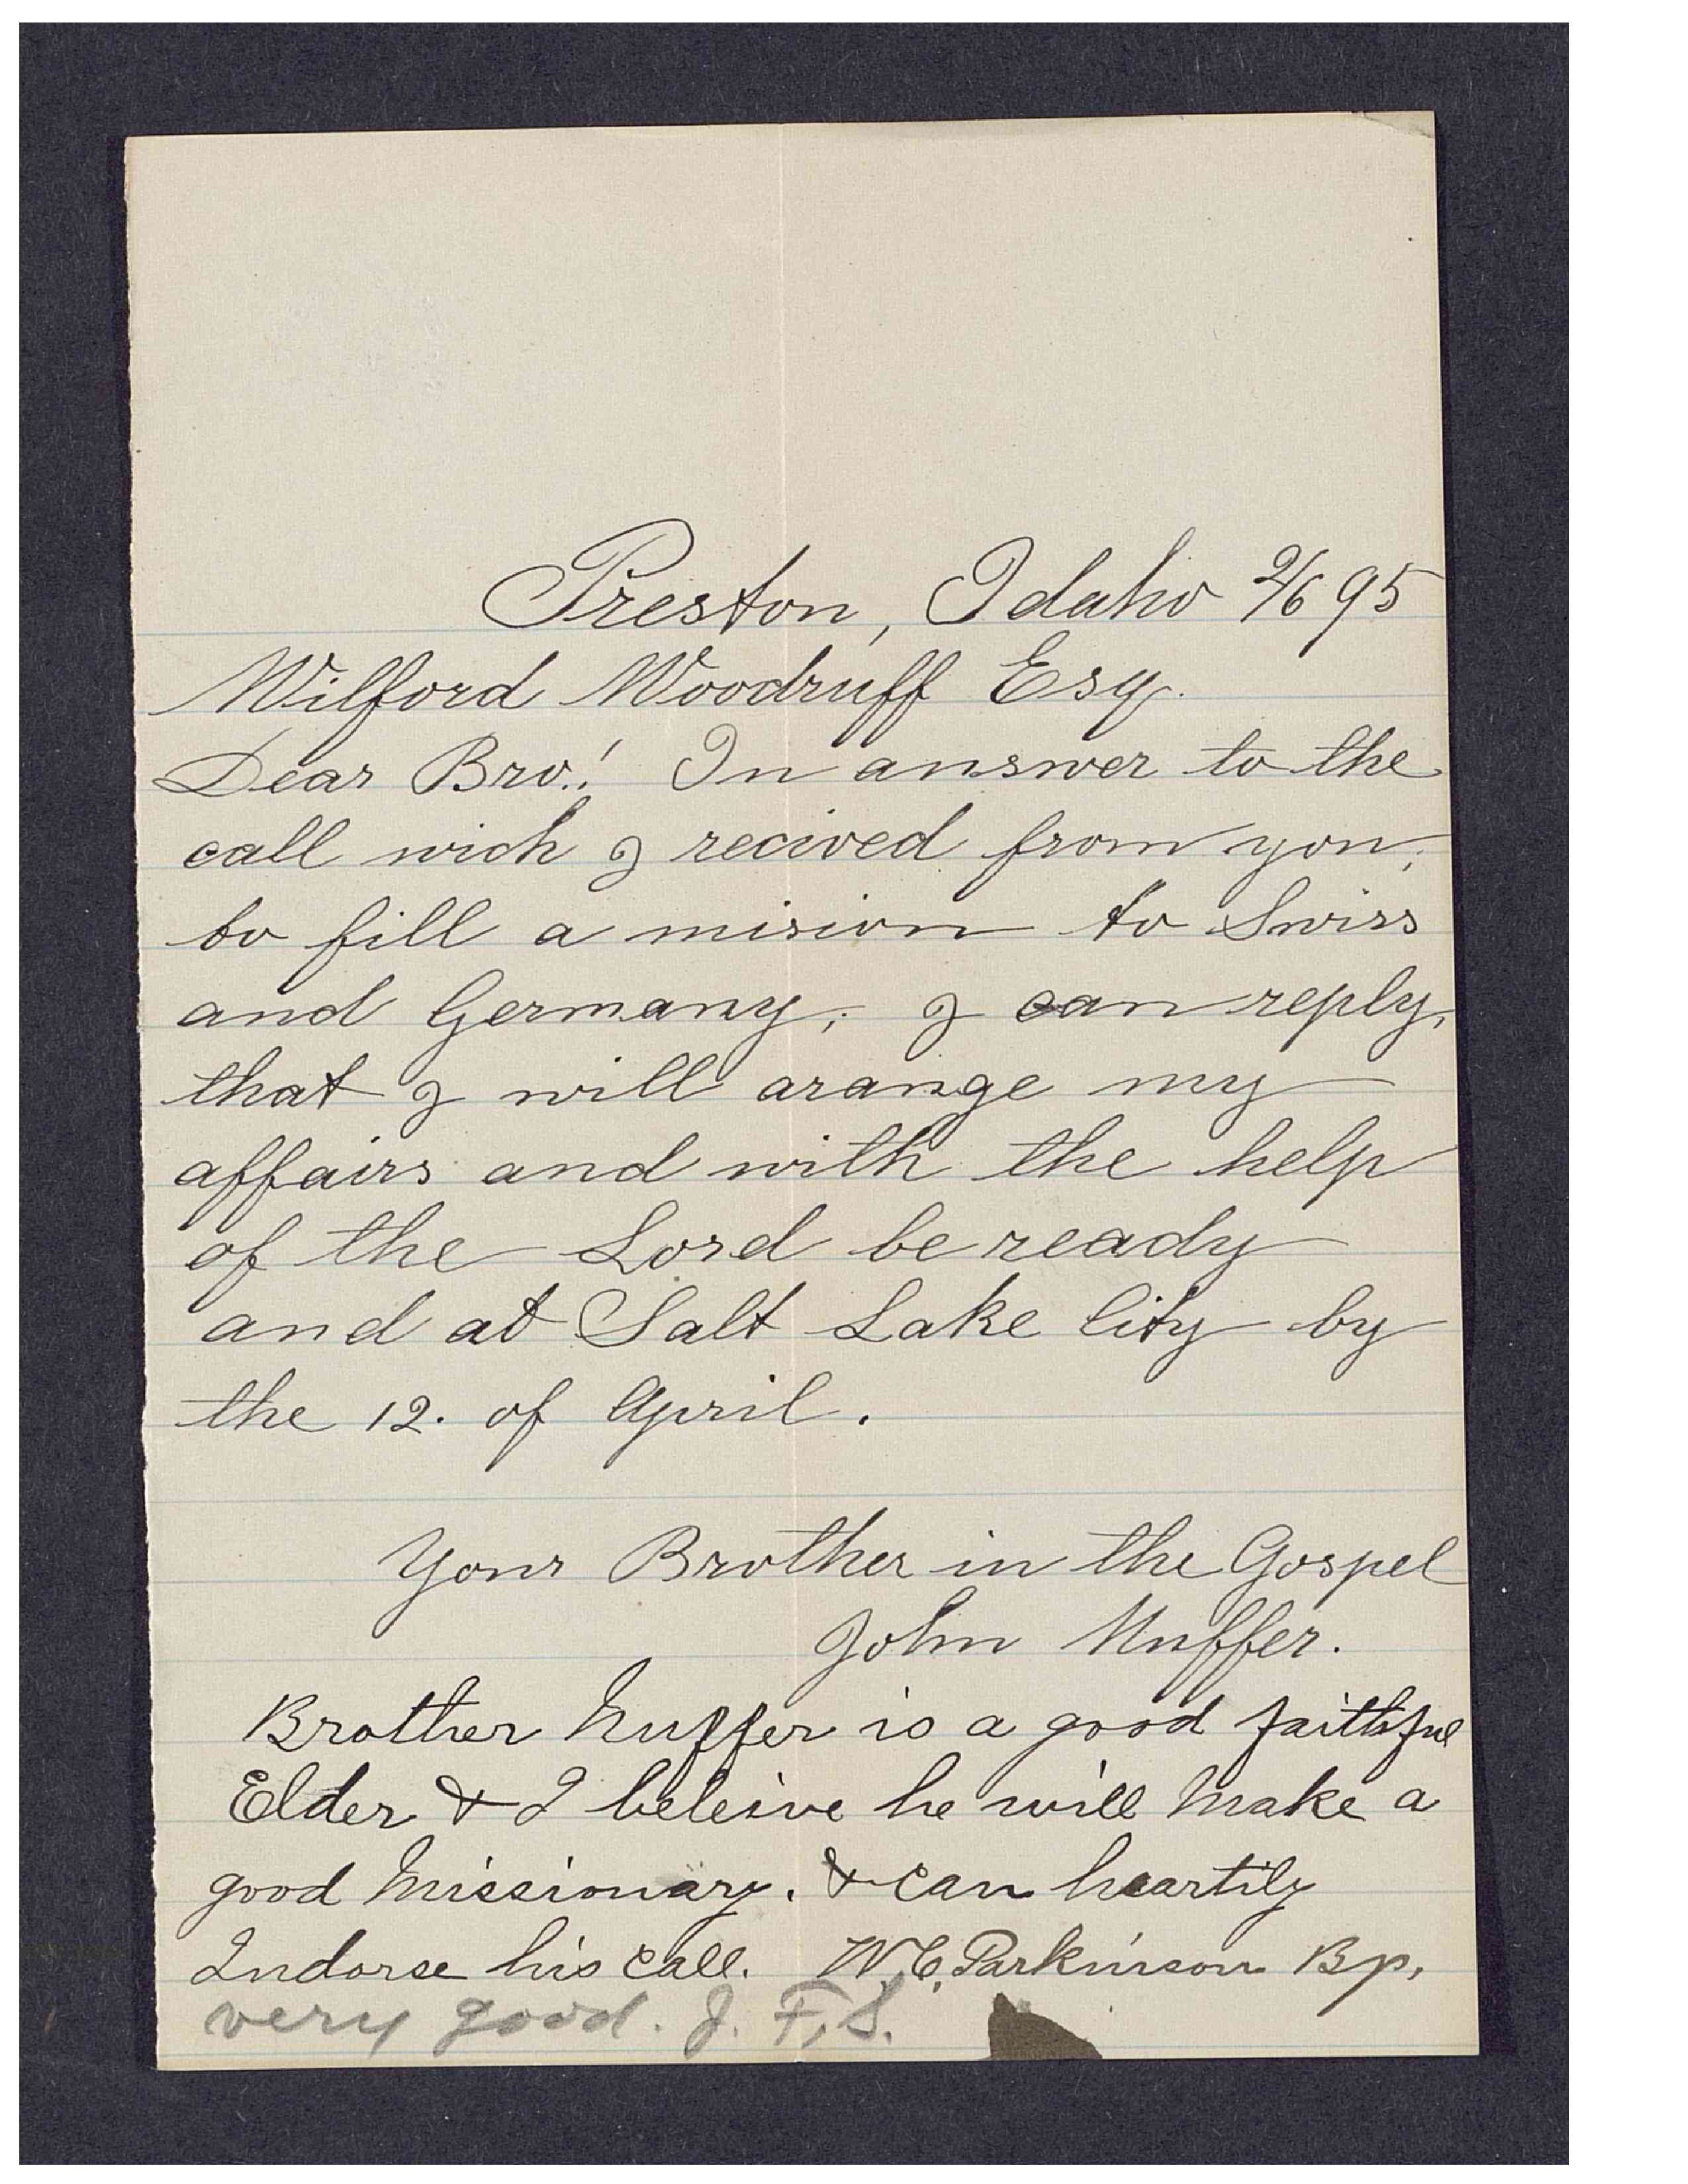 Preston, Idaho 2/6 95
Wilford Woodruff Esq.
Dear Bro.! In answer to the
call wich I recived from you,
to fill a mision to Swiss
and Germany, I can reply,
that I will arange my
affairs and with the help
of the Lord be ready
and at Salt Lake City by
the 12. of April.
Your Brother in the Gospel
John Nuffer.
Brother Nuffer is a good faithful
Elder & I beleive he will make a
good Missionary. & can heartily
Indorse his call. W C. Parkinson Bp,
very good. J. F. S.